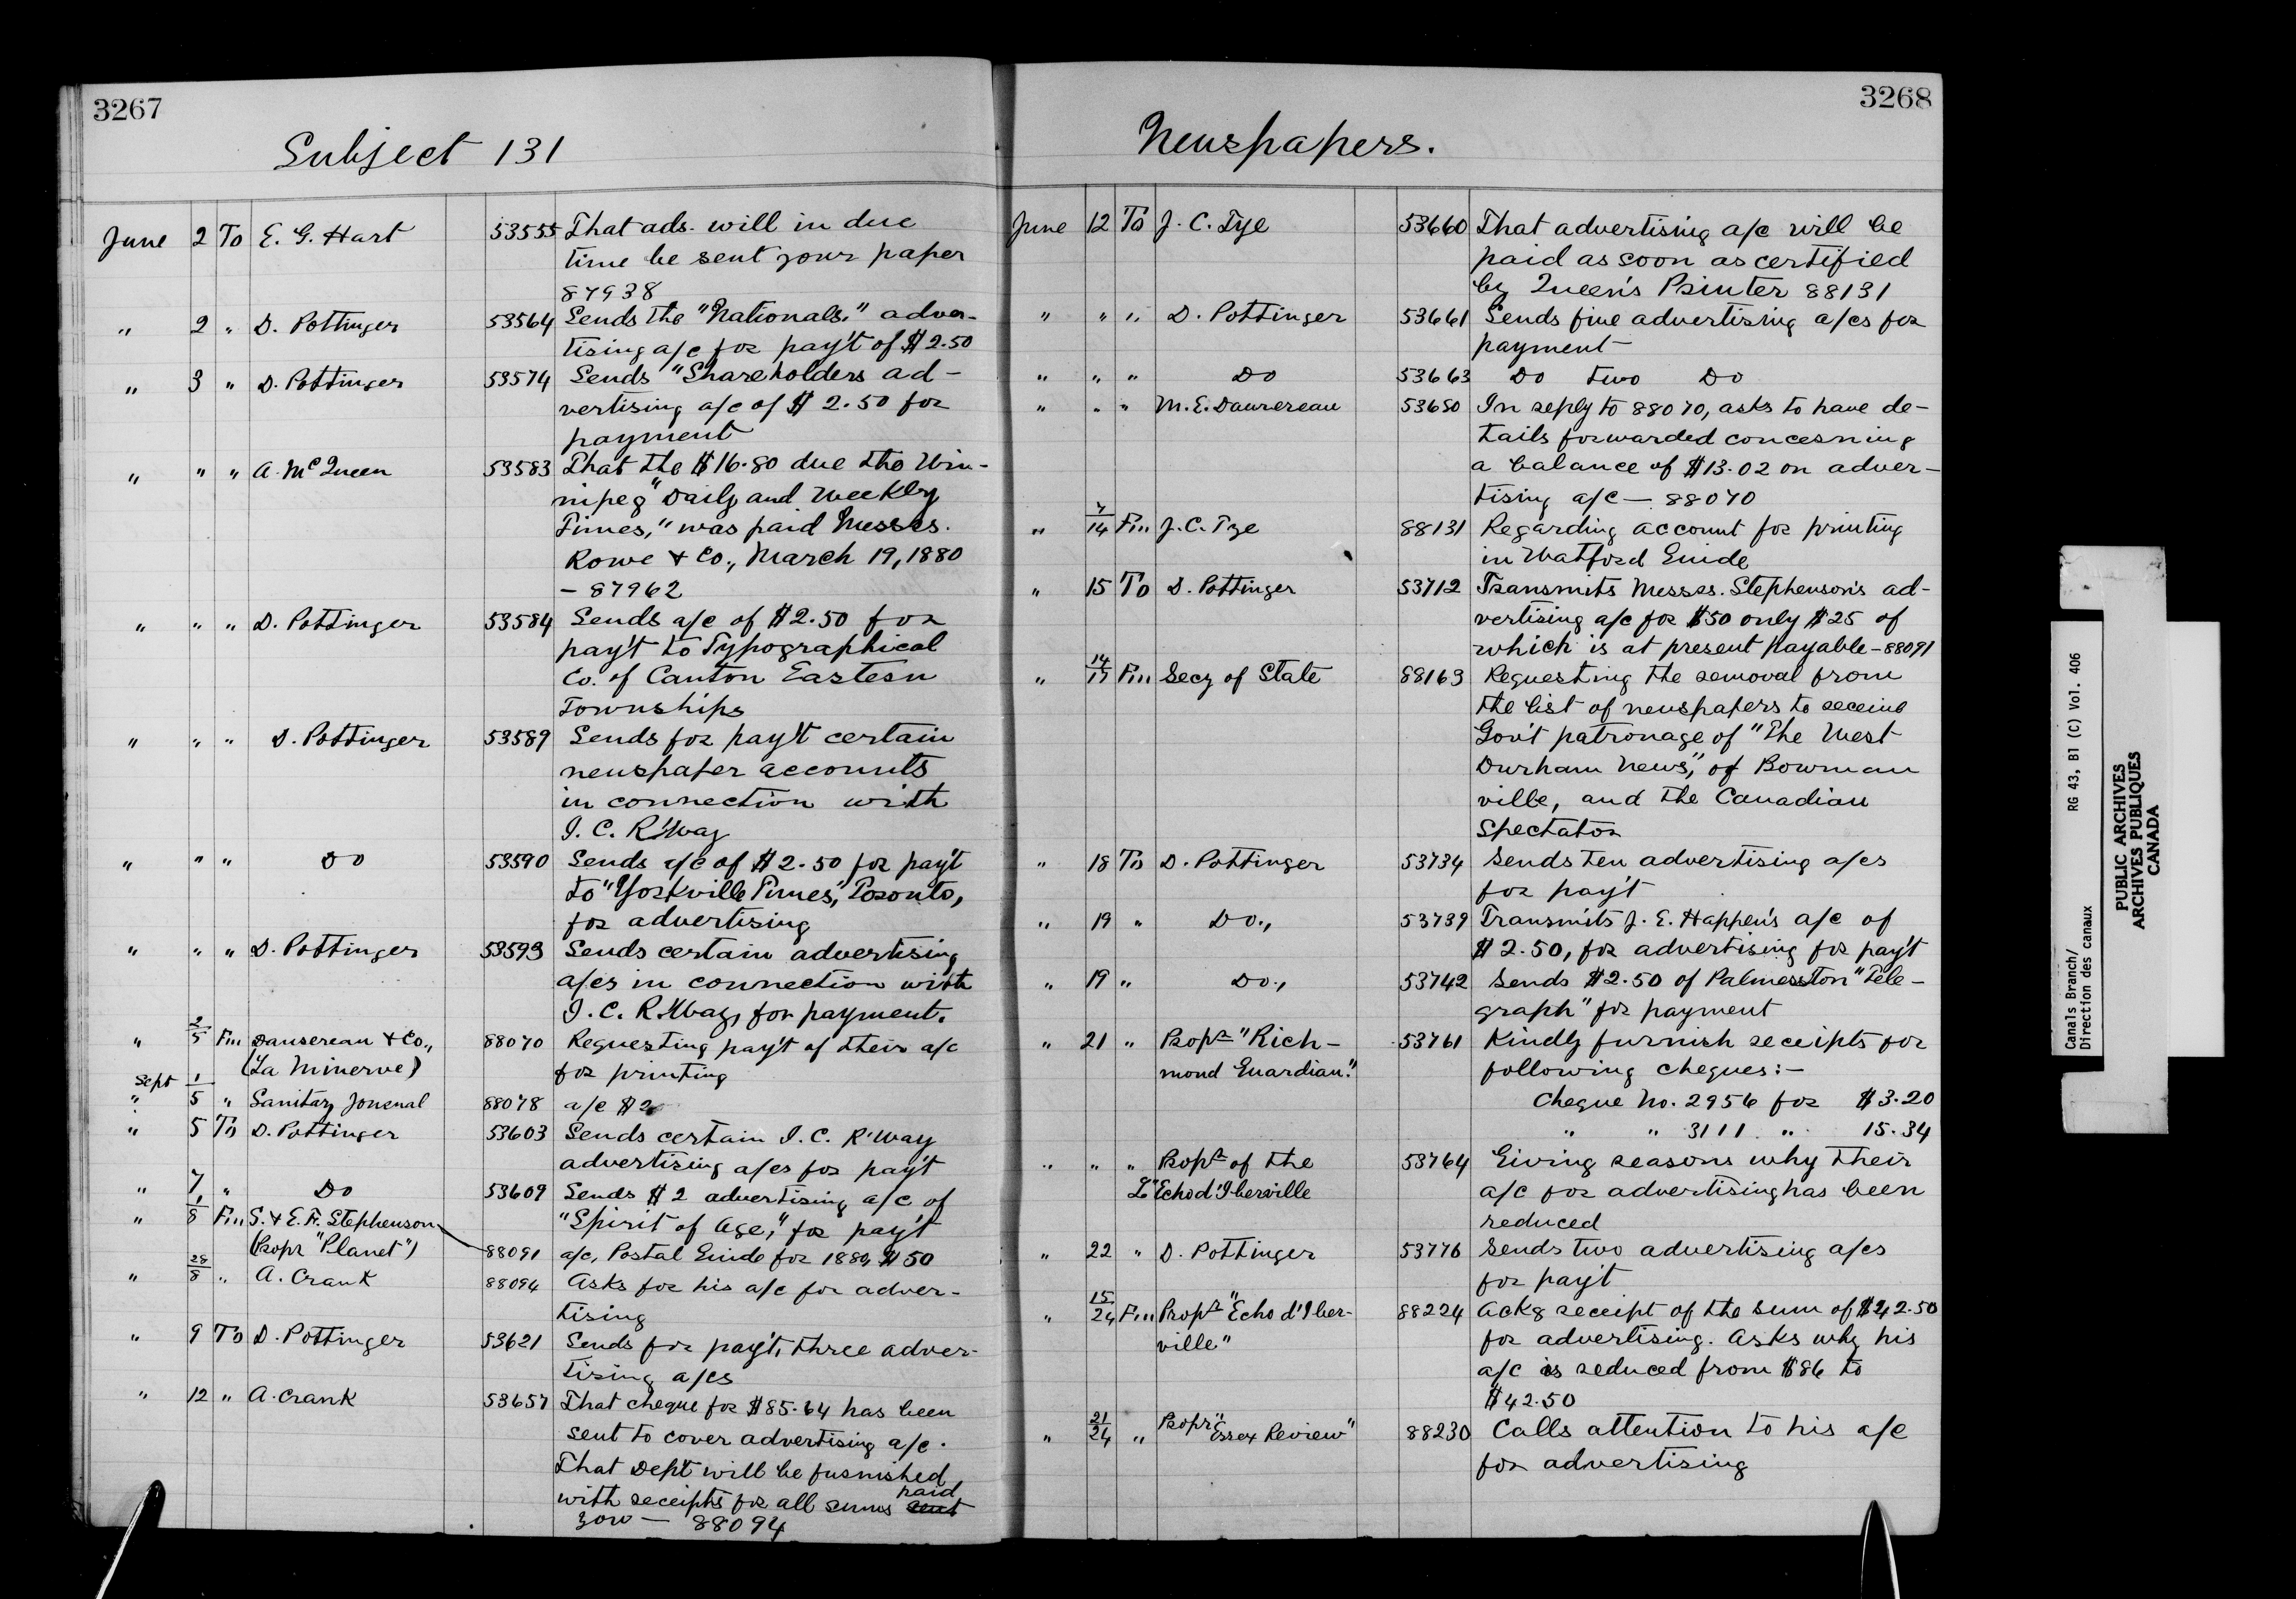 3267
Subject 131
June 2 To E. G. Hart 53555 That ads. will in due
time be sent your paper
87938
" 2 " D. Pottinger 53564 Sends the "Nationals" adver-
tising a/c for pay't of $2.50
" 3 " D. Pottinger 53574 Sends "Shareholders ad-
vertising a/c of $2.50 for
payment
" " " A. McQueen 53583 That the $16.80 due the Win-
nipeg "Daily and Weekly
Times," was paid Messrs.
Rowe & Co., March 19, 1880
- 87962
" " " D. Pottinger 53584 Sends a/c of $2.50 for
pay't to Typographical
Co. of Canton Eastern
Townships
" " " D. Pottinger 53589 Sends for pay't certain
newspaper accounts
in connection with
I. C. R'Way
" " " Do 53590 Sends a/c of $2.50 for pay't
to "Yorkville Times", Toronto,
for advertising
" " " D. Pottinger 53593 Sends certain advertising
a/cs in connection with
I. C. R.Way, for payment.
" 2/5 Fm Dansereau & Co., 88070 Requesting pay't of their a/c
(La Minerve) for printing
Sept 1/5 " Sanitary Journal 88078 a/c $2
" 5 To D. Pottinger 53603 Sends certain I. C. R'Way
advertising a/cs for pay't
" 7 " Do 53609 Sends $2 advertising a/c of
"Spirit of Age," for pay't
" 1/8 Fm S. & E. F. Stephenson
(Propr "Planet") 88091 a/c, Postal Guide for 1880, $50
" 28/8 " A. Crank 88094 Asks for his a/c for adver-
tising
" 9 To D. Pottinger 53621 Sends for pay't, three adver-
tising a/cs
" 12 " A. Crank 53657 That cheque for $85.64 has been
sent to cover advertising a/c.
That Dept will be furnished
with receipts for all sums sent paid
you — 88094
3268
Newspapers.
June 12 To J. C. Tye 53660 That advertising a/c will be
paid as soon as certified
by Queen's Printer 88131
" " " D. Pottinger 53661 Sends five advertising a/cs for
payment
" " " Do 53663 Do two Do
" " " M. E. Dansereau 53650 In reply to 88070, asks to have de-
tails forwarded concerning
a balance of $13.02 on adver-
tising a/c — 88070
" 7/14 Fm J. C. Tye 88131 Regarding account for printing
in Watford Guide
" 15 To D. Pottinger 53712 Transmits Messrs. Stephenson's ad-
vertising a/c for $50 only $25 of
which is at present payable - 88091
" 14/17 Fm Secy of State 88163 Requesting the removal from
the list of newspapers to receive
Gov't patronage of "The West
Durham News", of Bowman
ville, and the Canadian
Spectator
" 18 To D. Pottinger 53734 Sends ten advertising a/cs
for pay't
" 19 " Do., 53739 Transmits J. E. Happen's a/c of
$2.50, for advertising for pay't
" 19 " Do., 53742 Sends $2.50 of Palmerston "Tele-
graph" for payment
" 21 " Propr "Rich- 53761 Kindly furnish receipts for
mond Guardian." following cheques:—
Cheque No. 2956 for $3.20
" " 3111 " 15.34
" " " Propr of the 53764 Giving reasons why their
L'"Echo d'Iberville a/c for advertising has been
reduced
" 22 " D. Pottinger 53776 Sends two advertising a/cs
for pay't
" 15/24 Fm Propr "Echo d'Iber- 88224 Ackg receipt of the sum of $42.50
ville" for advertising. Asks why his
a/c is reduced from $86 to
$42.50
" 21/24 " Propr "Essex Review" 88230 Calls attention to his a/c
for advertising
Canals Branch/ RG 43, B1 (C) Vol. 406
Direction des canaux
PUBLIC ARCHIVES
ARCHIVES PUBLIQUES
CANADA